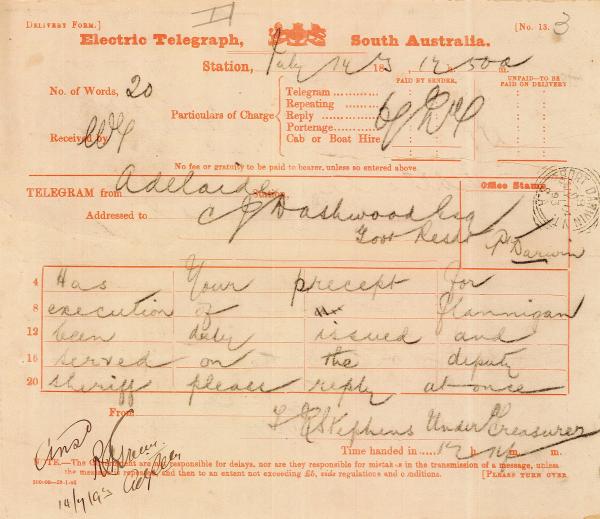 DELIVERY FORM.]
[No. 13.
3
Electric Telegraph, South Australia.
Station, July 14 18 93, 12.50 a m.
PAID BY SENDER.
UNPAID—TO BE PAID ON DELIVERY
No. of Words, 20
Particulars of Charge
Telegram
Repeating
Reply
Porterage
Cab or Boat Hire
Received by
No fee or gratuity to be paid to bearer, unless so entered above.
TELEGRAM from Adelaide Station,
Office Stamp
PORT DARWIN
Addressed to C J Dashwood Esq
Govt Resdt Pt Darwin
4 Has Your precept for
8 execution of Flannigan
12 been duly issued and
16 served on the deputy
20 sheriff please reply at once
From L H Stephens Under Treasurer
Time handed in 12 m.
NOTE.—The Government are not responsible for delays, nor are they responsible for mistakes in the transmission of a message, unless
the message is repeated, and then to an extent not exceeding £5, vide regulations and conditions. [PLEASE TURN OVER
Ansd
14/7/93